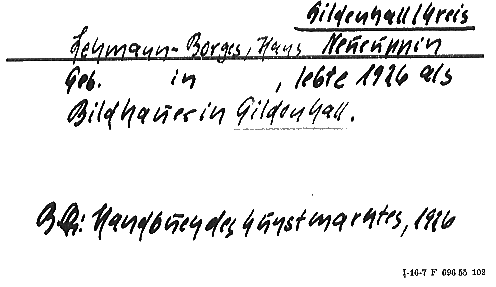 Gildenhall Kreis
Lehmann-Borges, Hans Neuruppin
Geb. in , lebte 1926 als
Bildhauer in Gildenhall.
Handbuch des Kunstmarktes, 1926
I-16-7 F 696 55 102